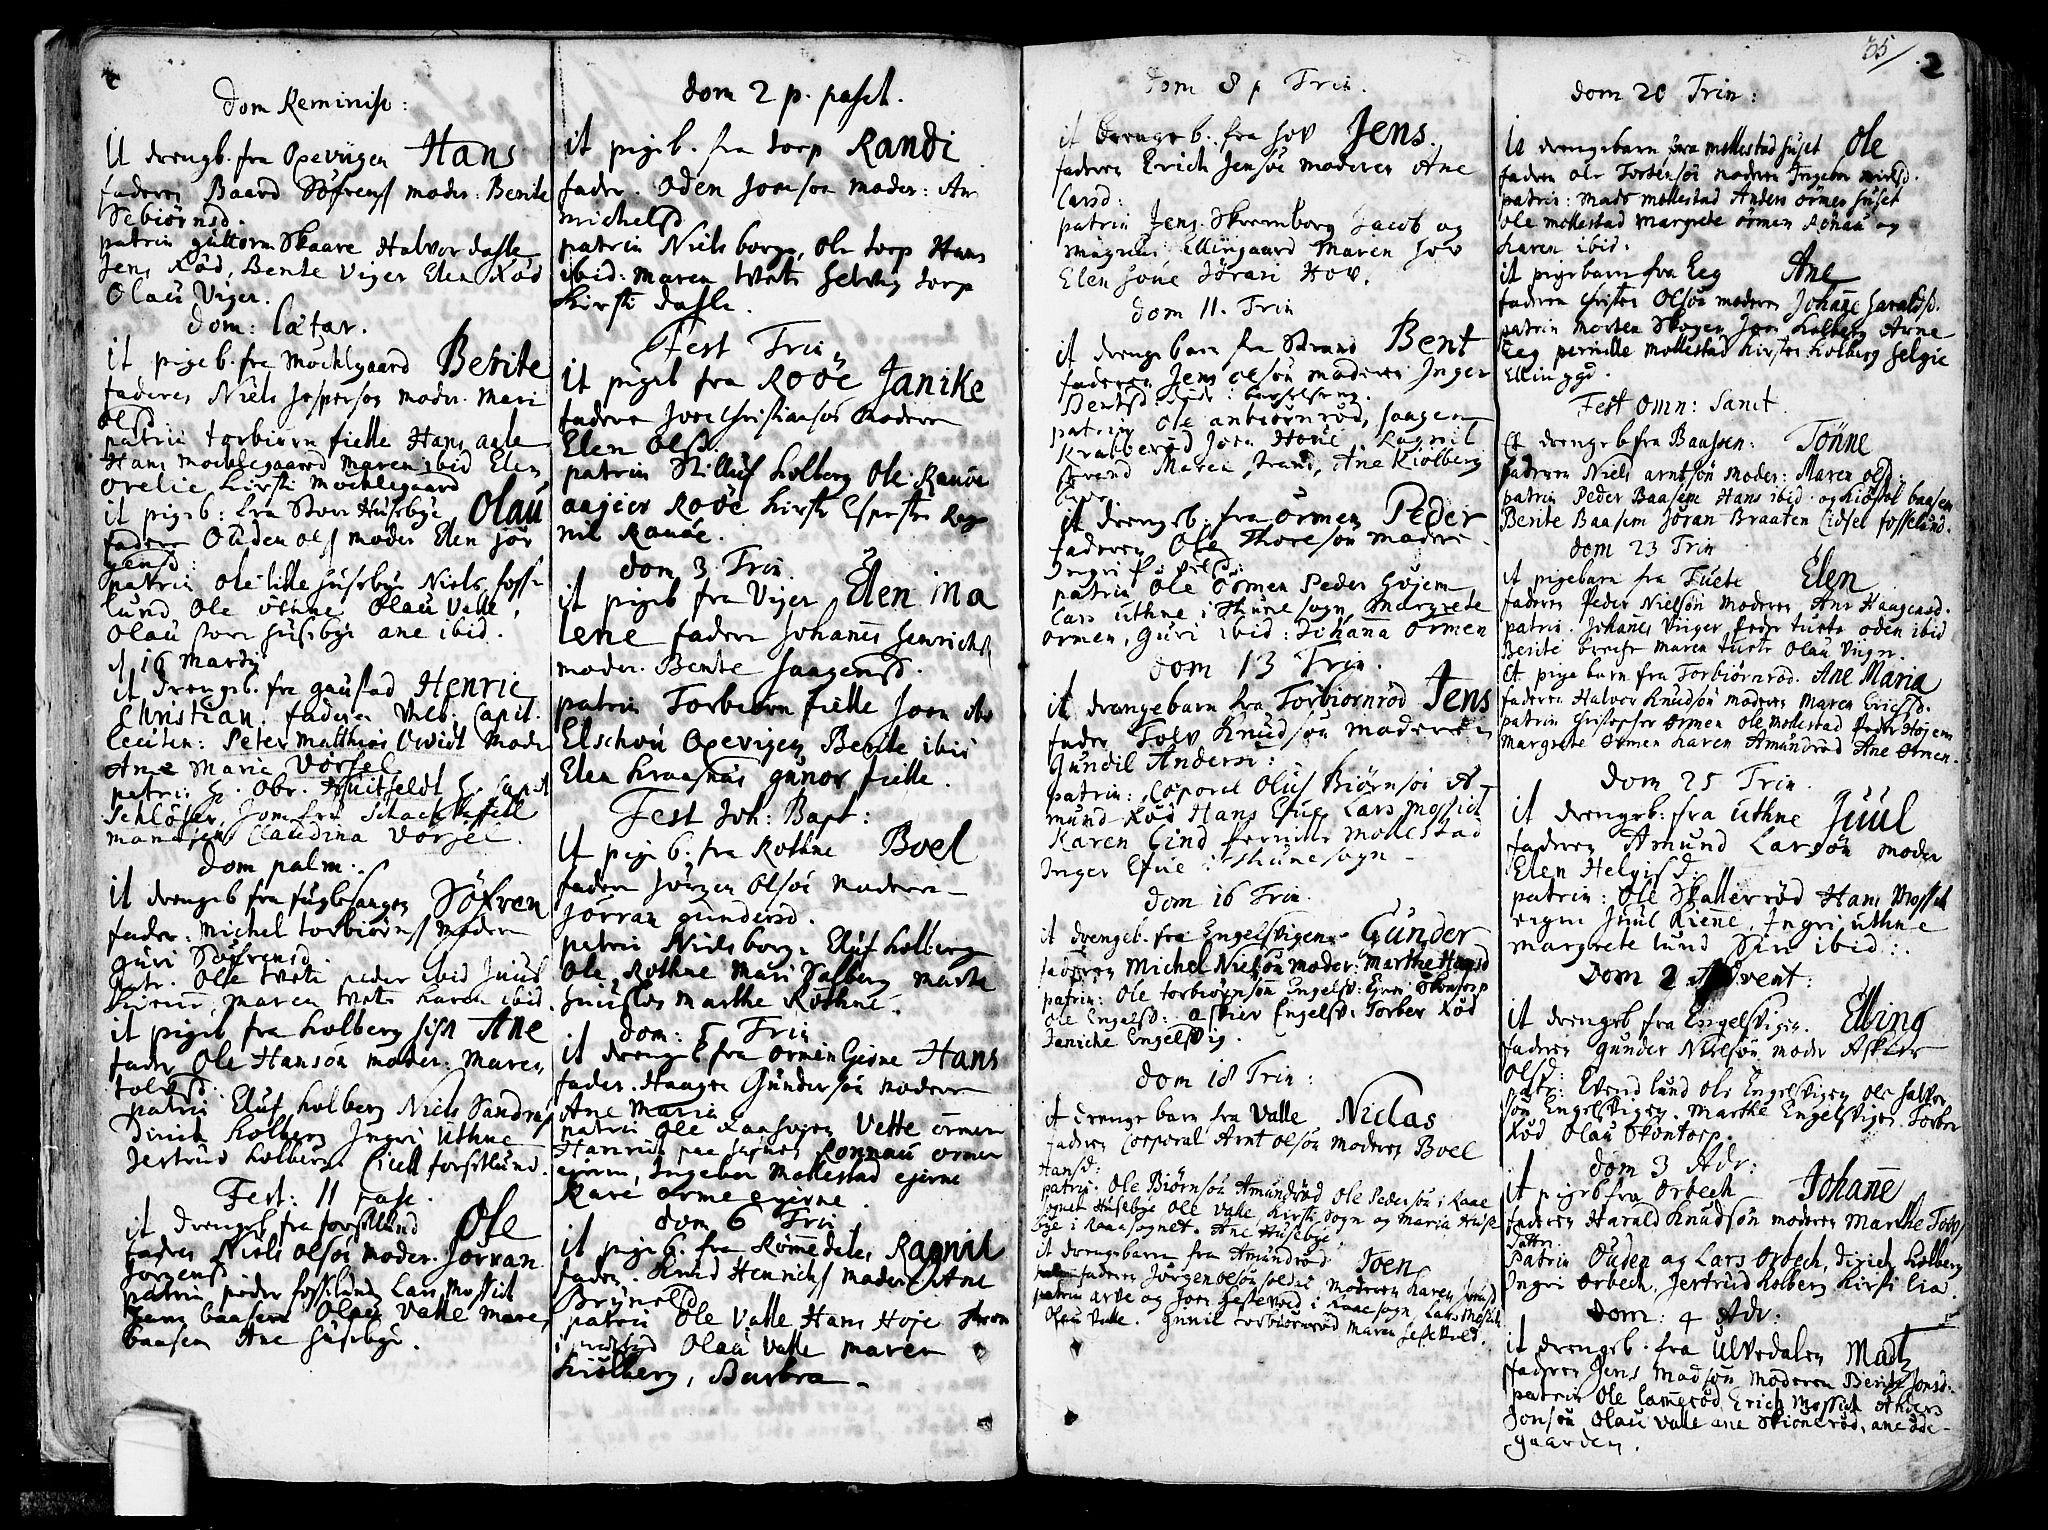 Dom Reminisc:
it drengb. fra Opevigen Hans
faderen Baard Söfrens moder: Berite
Sebiörnsd.
patrin guttorm Skaare Halvor dahle
Jens Röd, Bente Viger Elen Röd
Olaü Viger.
Dom: Lætar.
it pigeb. fra Mocklegaard Berite
faderen Niels Jespersøn moder. Mari
Olsd
patrin torbiörn fielle Hans aale
Hans mocklegaard maren ibid Elen
orelie Kirsti Mocklegaard
it pigeb: fra Store Husebye Olaü
fader Ouden ols moder Elen Jör
gensd:
patrin Ole lille husebye Niels foss
lund Ole uthne Olaü Valle,
Olaü store husebye ane ibid.
d 16 Martij
it drengb. fra gaustad Henric
Christian. faderen Velb: Capit.
Leuten: Peter Matthias Moder
Ane Marie Vörsel
patri: H. Obr. Huitfeldt H. Capit
Schlöser, Jomfru
Claudina Vörsel.
Dom palm:
it drengb fra fuglesangen Söfren
fader: Michel torbiörns moder
guri Söfrensd.
patr. Ole tvete peder ibid Juul
Kienne, maren tvete karen ibid.
it pigeb fra Kolberg Ane
fader Ole Hansön moder: Maren
tolvsd:
patrin Eluf Kolberg Niels Sandnæs
Dirich Kolberg Ingri Uthne
Jertrud Kolberg. Cicell forsetlund.
Fest: 11 pasc.
it drengeb fra forsetlund Ole
fader Niels Olsön moder. Jörran
Jörgensd
patrin peder fosselund Lars Mossich
baasen Olaü Valle Maren
baasen Ane husebye.
Dom 2 p. pasch.
it pigeb. fra torp Randi
fader. Oden Joensøn moder: An
michelsd
patrin Niels borge, Ole torp Hans
ibid: maren tvete torp
Kirsti dahle.
Fest Trin
it pigeb fra Roöe Janike
faderen Joen Christiansøn Moderen
Elen Olsd:
patrin Kolberg Ole Ranöe
aagier Roöe Kirsti Rag
nil Ranöe.
Dom 3 Trin.
it pigeb fra Viger Elen Ma
lene faderen Johanes Henrichs
moder. Bente Haagensd.
patrin Torbiörn fielle Joen ibid
Opevigen Berite ibid
Elen Kraagnæs gunor fielle.
Fest Joh: Bapt:
it pigeb. fra Rothne Boel
faderen Jörgen Olsön Moderen
Jörran gundersd.
patrin Niels borge Eluf Kolberg
Ole Rothne Mari Salberg marte
Marthe Rothne.
Dom: 5 Trin
it drengeb fra Ormen Hans
fader. Haagen Gundersön moderen
Ane Maria
patrin Ole Vette ormen
Ronnau ormen
Ingebor Mollestad ejerne
Kare orme ejerne
Dom 6 Trin
it pigeb. fra Rönnedalen Ragnil
fader. Knud Henrichs Moder Ane
Brynilsd
patrin Ole Valle Hans Hoje
Olaü Valle maren
Kiölberg, Barbra –
Dom 8 p Trin.
it drengeb. fra hov Jens.
faderen Erich Jensön moderen Ane
Larsd:
patrin Jens Skremborg Jacob og
Magnus Ellingaard Maren hov
Elen hoüe Jörari Hov.
Dom 11. Trin
it drengebarn fra Strand Bent
faderen Jens olsön moderen Inger
Bentsd:
patrin Ole anbiörnrød, haagen
Krabberød Joen Hoüe Ragnil
Strand Maren Strand, Ane Kiölberg
it drengeb. fra ormen Peder
faderen Ole Thoresön moderen
Ingri
patrin Ole ormen Peder hojem
Lars Uthne i thune sogn Margrete
ormen, Guri ibid: Johanna ormen
Dom 13 Trin.
it drengebarn fra Torbiornröd Jens
fader Tolv Knudsön moderen
Gundil Andersd:
patrin: Corporal Oluf Biörnsön A
mund Röd Hans Efue Lars Mossich
Karen Lind Pernille Mollestad
Inger Efue i thunesogn –
Dom 16 Trin.
it drengeb. fra Engelsvigen Gunder
faderen Michel Nielsön moder: Marthe Hansd
patrin: Ole torbiörnsön Engelsv: Skontorp
Ole Engelsv: Askier Engelsv: Torber Röd
Janiche Engelsvig.
Dom 18 Trin:
it drengebarn fra Valle Niclas
faderen Corporal Arnt olsön moderen Boel
Hansd:
patrin: Ole Biörnsön Amundröd Ole Pedersön i Raae
sognet Husebye Ole Valle, Kirsti Sogn og Maria Huse
bye i Raaesognet. Ane Husebye.
it drengebarn fra Amundröd Joen
faderen Jörgen olsön moderen Karen
patrin arve og Joen i Raaesogn, Lars Mossich
Olau Valle. Gunil torbiörnröd Maren
35/ 2
Dom 20 Trin:
it drengebarn fra mollestad huset Ole
faderen Ole Torbensön moderen Ingebor nielsd.
patrin: Mads mollestad Anders örmen huset
Ole mollestad margrete ormen Ronau og
Karen ibid:
it pigebarn fra Eeg Ane
faderen Christen Olsön moderen Johane haraldsd.
patrin Morten Skoger Joen Kolberg Arne
Eeg pernille mollestad Kirsten Kolberg helgie
Ellinggd.
Fest omn: Sanct.
Et drengeb fra Baasen: Tönne
faderen Niels arntsön moder: Maren olsd.
patrin Peder Baasen Hans ibid og baasen
Berite Baasen Jöran Braaten Cidsel fosselund.
Dom 23 Trin
it pigebarn fra Tuete Elen
faderen Peder Nielsön moderen Ane Haagensd.
patrin. Johanes Viiger Peder tuete oden ibid
Berite Maren tuete Olaü Viiger.
Et pigebarn fra Torbiörnröd. Ane Maria
faderen Halvor Knudsön moderen Maren Erichsd.
patrin Christopher ormen Ole Mollestad Peder Hojem
Margrete Ormen Karen Amundröd Ane Ormen.
Dom 25 Trin.
it drengeb: fra Uthne Juul
faderen Amund Larsön moder
Elen Helgisd:
patrin: Ole Skallerröd Hans Mossich
Juul Kiene, Ingri uthne
margrete lund Siri ibid:
Dom 2 Advent:
it drengeb fra Engelsvigen. Elling
faderen gunder Nielsön moder Askier
Olsd:
patr: Evend lund Ole Engelsvigen Ole halver
sön Engelsvigen. Marthe Engelsvigen Torber
Röd Olau Skontorp.
Dom 3 Adv:
it pigeb fra Orbech Johane
faderen Harald Knudsön moderen Marthe Tords
datter
Patrin Ouden og Lars Orbech, Dirich Kolberg
Ingri Orbech, Jertrud Kolberg Kirsti lia.
Dom: 4 Adv:
it drengeb. fra Ulvedalen Madz
faderen Jens Madsön moderen Berite Jonsd.
patrin Ole lammeröd Erich Mossich Anders
Jonsön Olaü Valle ane Skiöneröd, ane öde-
gaarden.